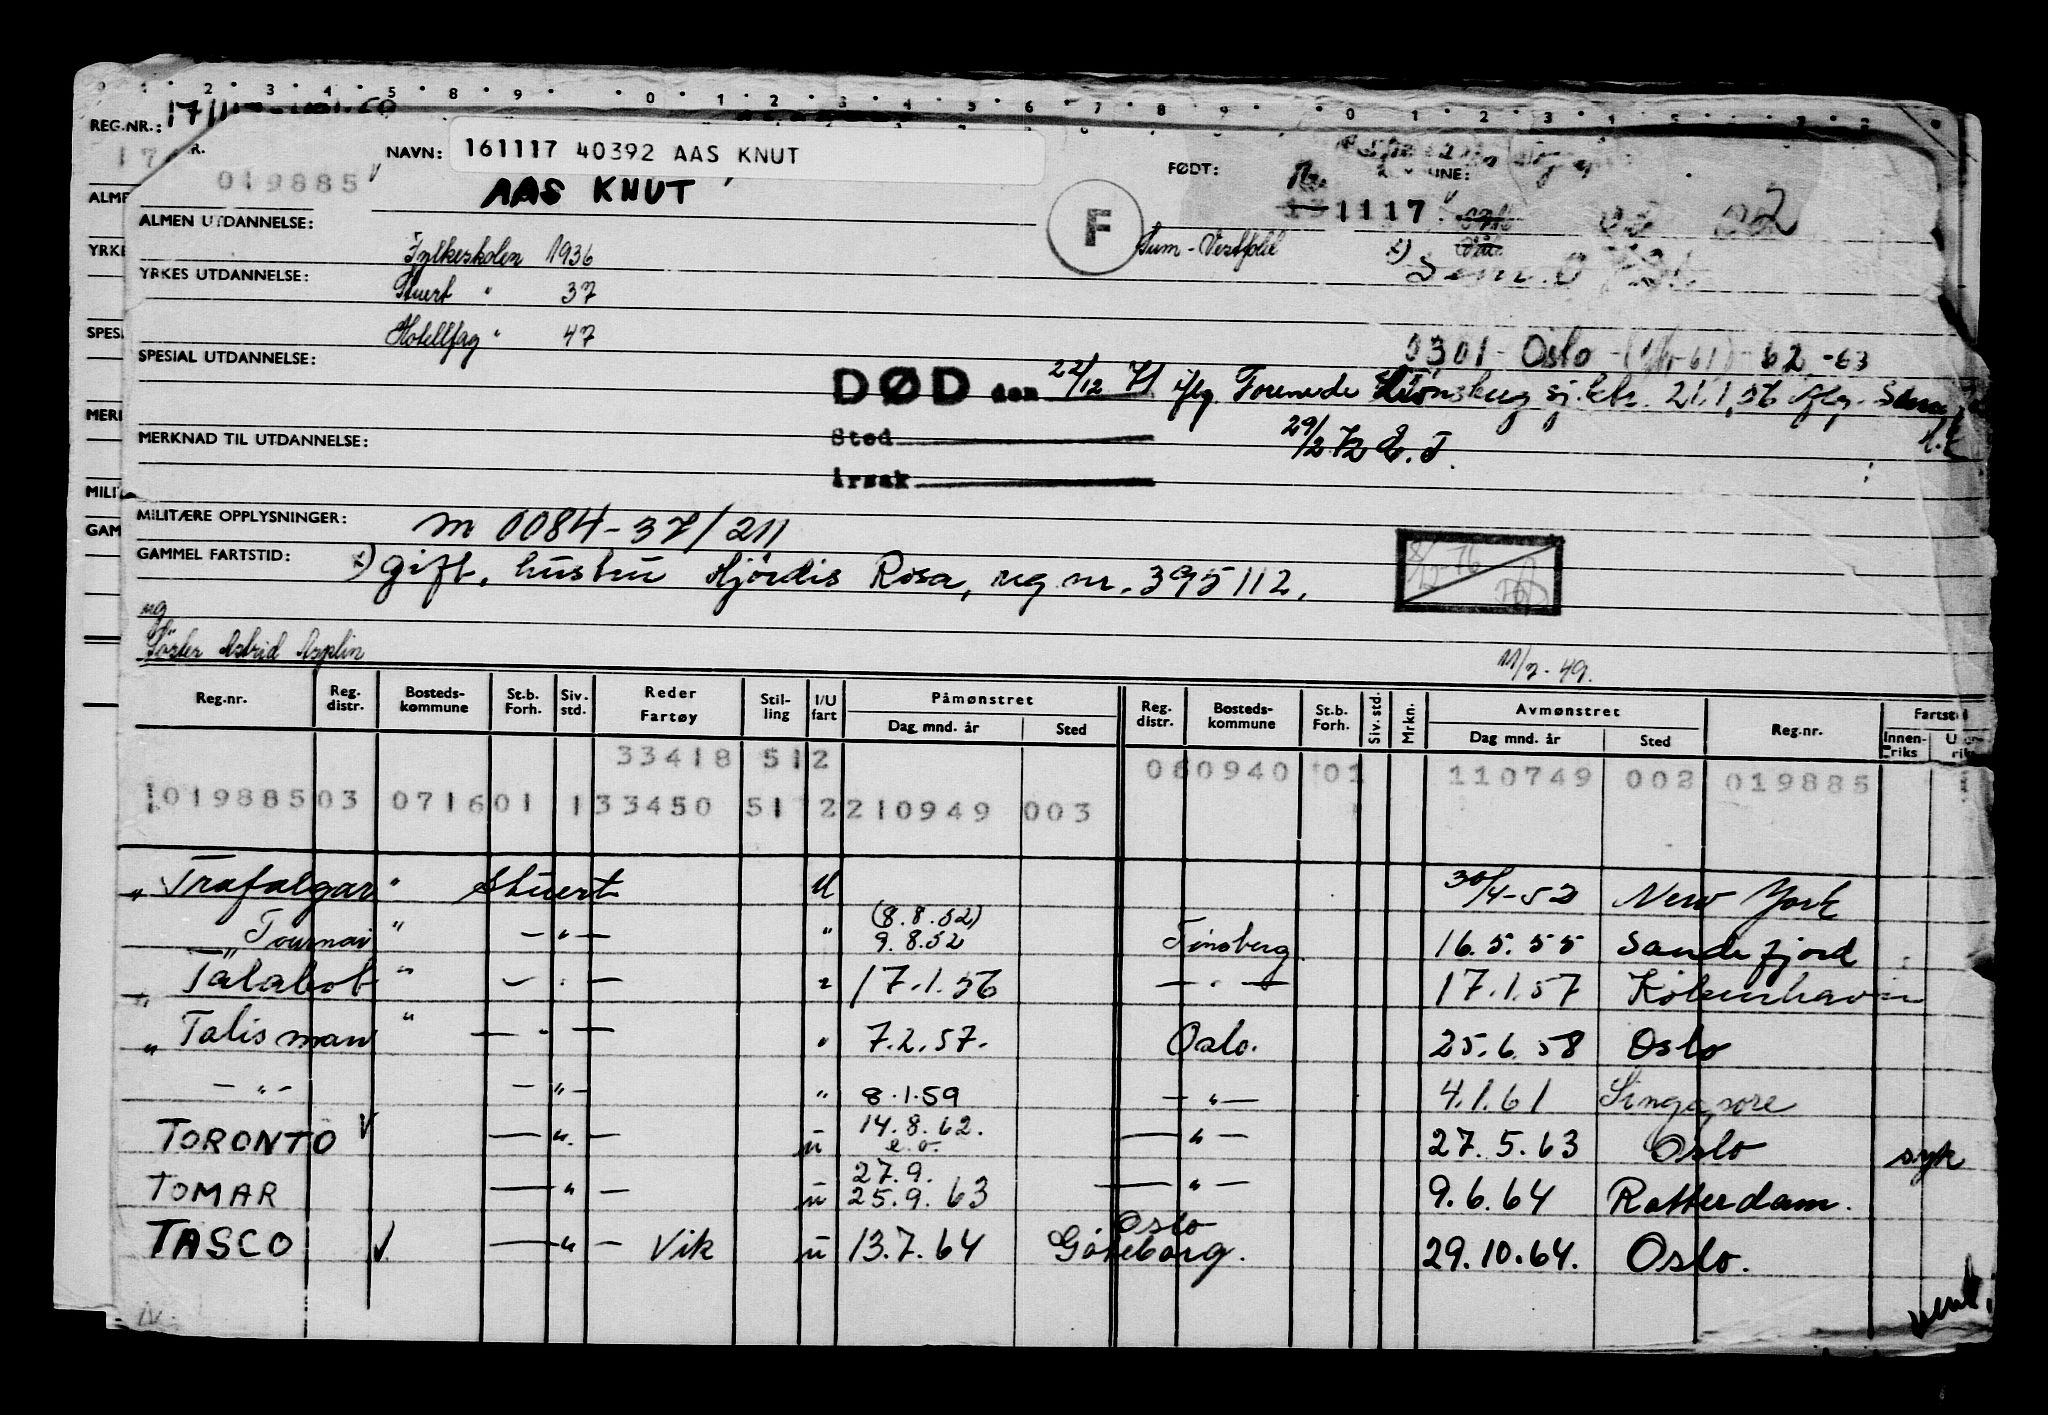 REG.NR.:
NAVN: 161117 40392 AAS KNUT
FØDT:
019885
AAS KNUT
1117
F
ALMEN UTDANNELSE:
Fylkesskolen 1936
Sem - Vestfold
YRKES UTDANNELSE:
Stuert " 37
Hotellfag " 47
0301 - Oslo - 62 - 63
SPESIAL UTDANNELSE:
DØD den 22/12 71 iflg. Forenede
Sted
29/2 72
MERKNAD TIL UTDANNELSE:
Årsak
MILITÆRE OPPLYSNINGER: M 0084-37/211
GAMMEL FARTSTID: x) gift, hustru Hjördis Rosa, reg nr. 395112.
Søster Astrid Asplin
11/7-49.
Reg.nr. Reg. distr. Bosteds- kommune St.b. Forh. Siv. std. Reder Fartøy Stil- ling I/U fart Påmønstret Dag mnd. år Sted Reg. distr. Bosteds- kommune St.b. Forh. Siv. std. Mrkn. Avmønstret Dag mnd. år Sted Reg.nr. Innen- riks
33418 512 060940 01 110749 002 019885
019885 03 0716 01 1 33450 51 2 210949 003
" Trafalgar " Stuert U 30/4-52 New York
(8.8.52)
" Tournai " — " — " 9.8.52 Tønsberg 16.5.55 Sandefjord
" Talabot " — " — " 17.1.56 — " — 17.1.57 København
" Talisman " — " — " 7.2.57. Oslo. 25.6.58 Oslo
— " — — " — " 8.1.59 — " — 4.1.61 Singapore
TORONTO — " — u 14.8.62. e.o. — " — 27.5.63 Oslo syk
27.9.
TOMAR — " — u 25.9.63 — " — 9.6.64 Rotterdam.
Oslo
TASCO — " — Vik u 13.7.64 Göteborg. 29.10.64. Oslo.
vend.